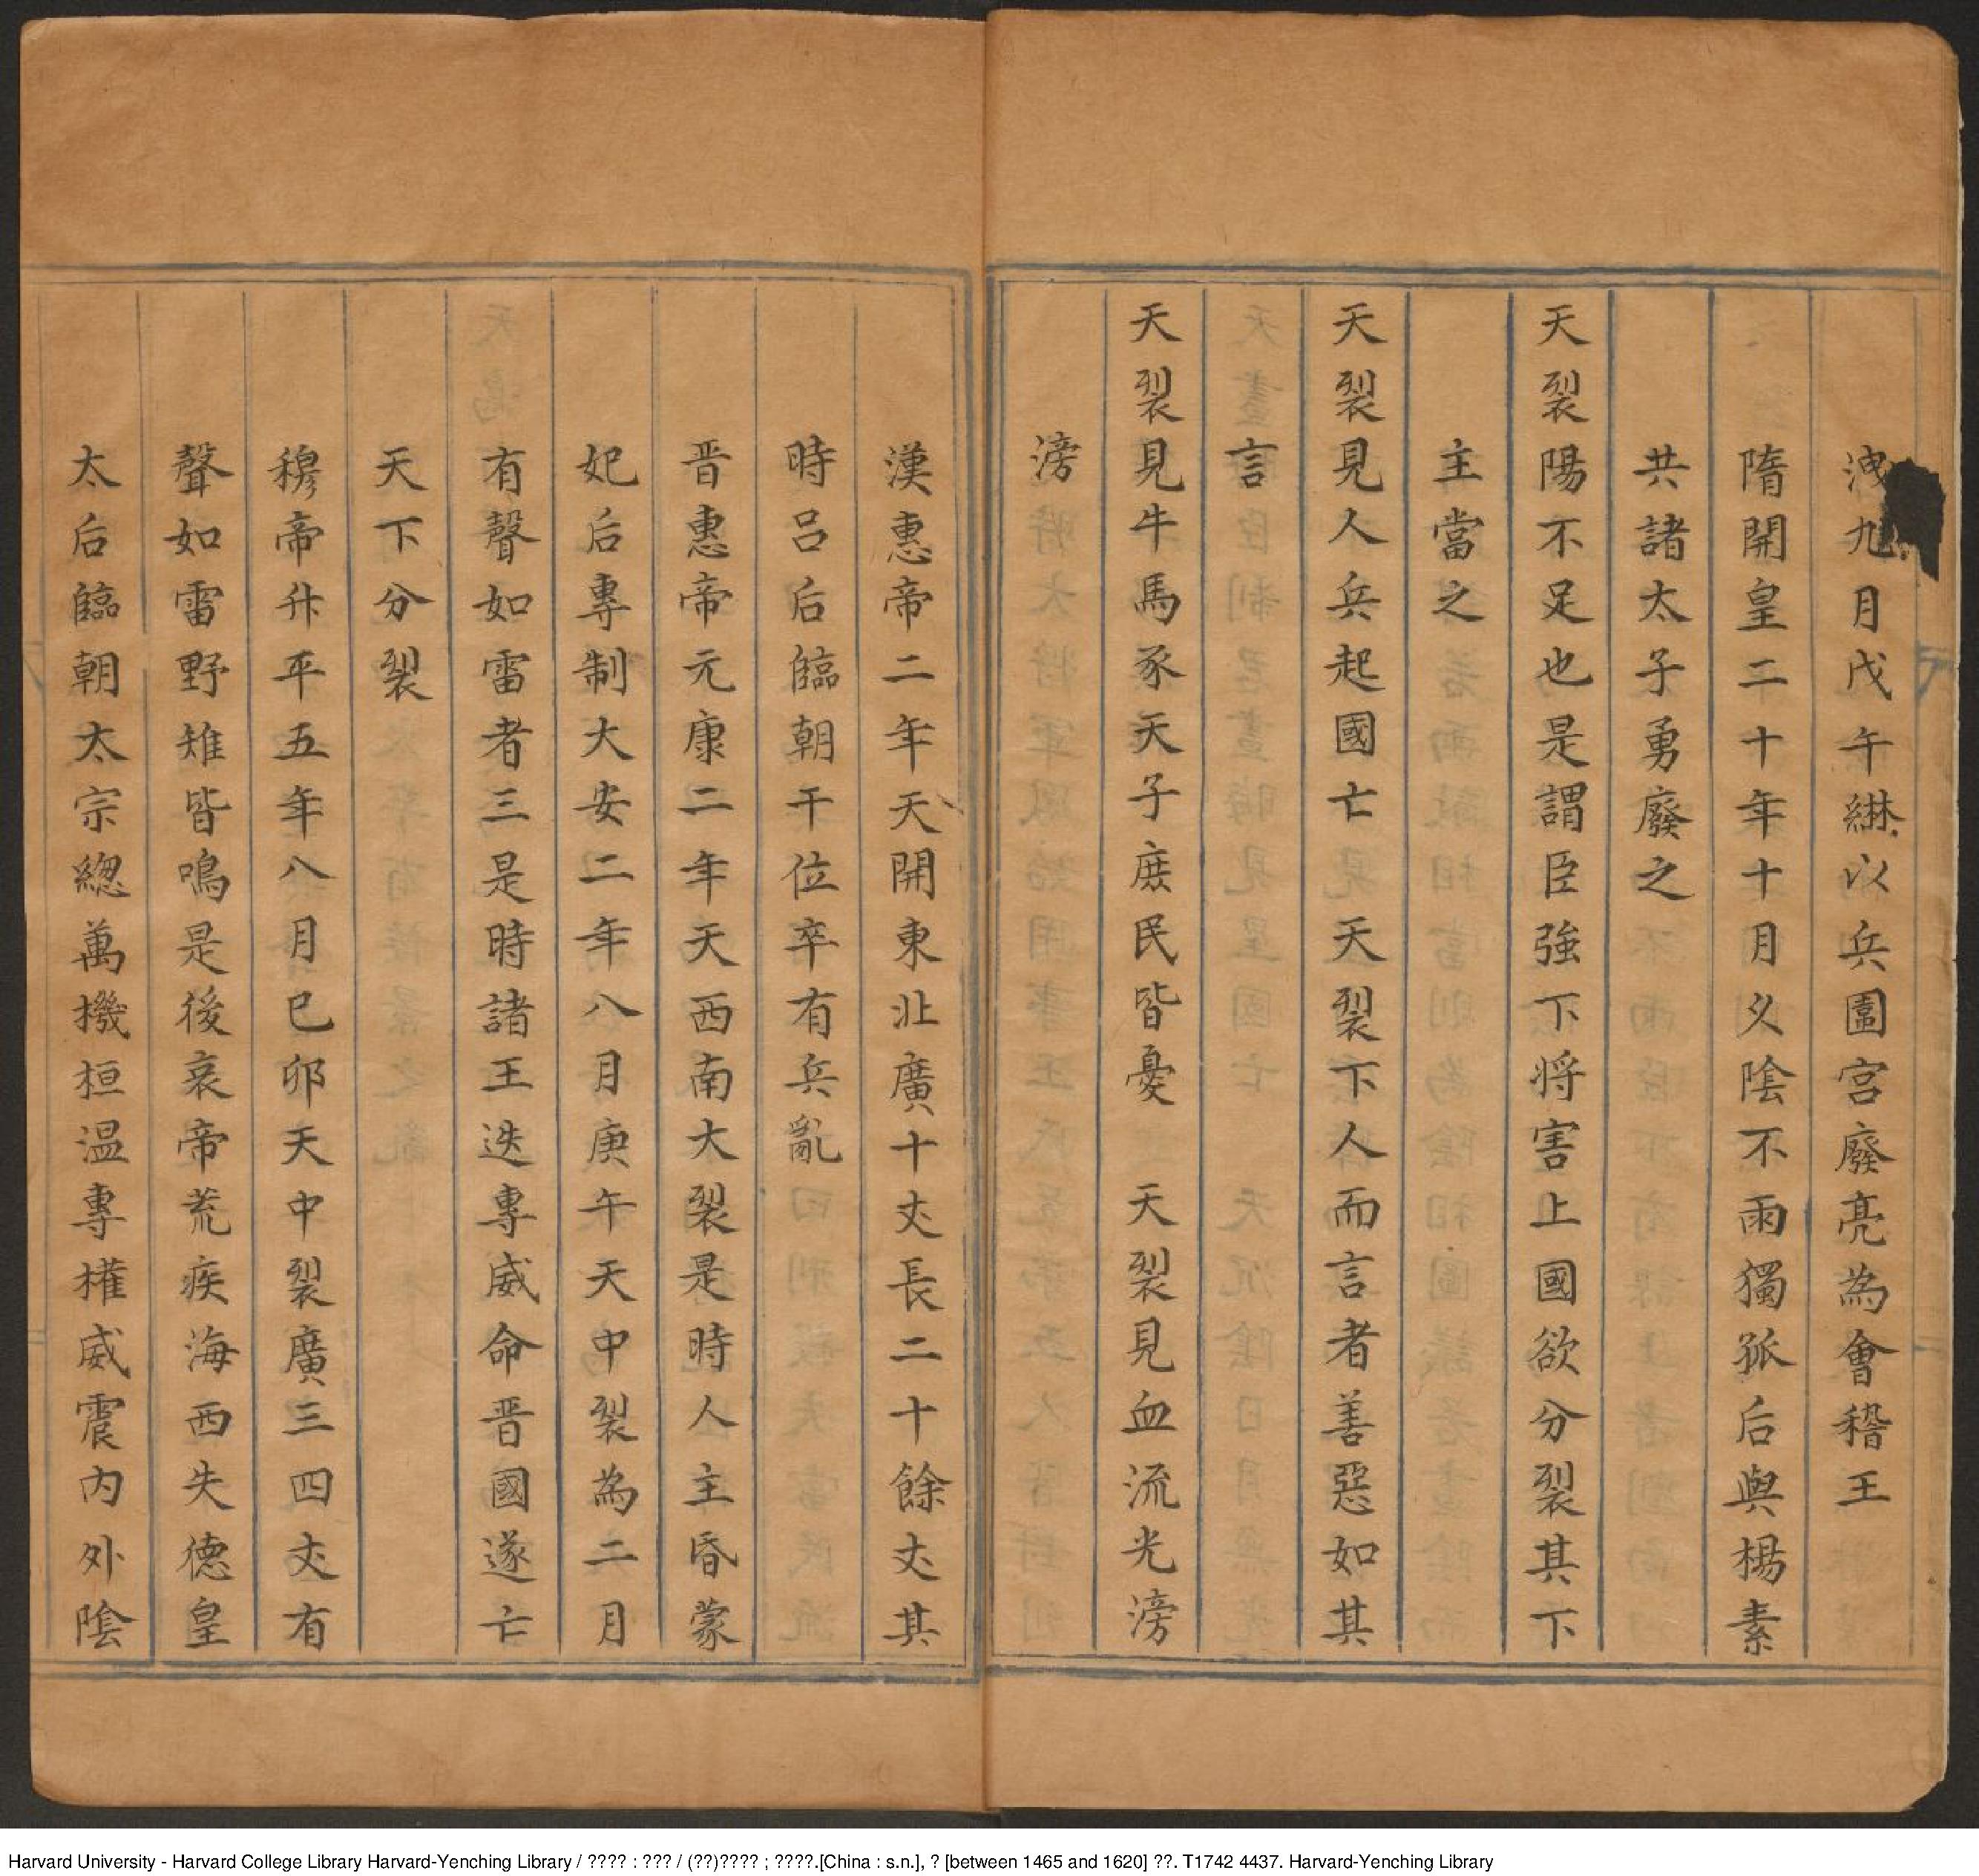 洩九月戊午綝以兵圍宮廢亮為會稽王
隋開皇二十年十月乂陰不雨獨孤后與楊素
共諸太子勇廢之
天裂陽不足也是謂臣強下將害上國欲分裂其下
主當之
天裂見人兵起國亡 天裂下人而言者善惡如其
言
天裂見牛馬豕天子庶民皆憂 天裂見血流光滂
滂
漢惠帝二年天開東北廣十丈長二十餘丈其
時呂后臨朝干位卒有兵亂
晋惠帝元康二年天西南大裂是時人主昏蒙
妃后專制大安二年八月庚午天中裂為二月
有聲如雷者三是時諸王迭專威命晋國遂亡
天下分裂
穆帝升平五年八月己卯天中裂廣三四丈有
聲如雷野雉皆鳴是後哀帝荒疾海西失德皇
太后臨朝太宗總萬機桓温專權威震内外陰
Harvard University - Harvard College Library Harvard-Yenching Library / ???? : ??? / (??)???? ; ????.[China : s.n.], ? [between 1465 and 1620] ??. T1742 4437. Harvard-Yenching Library